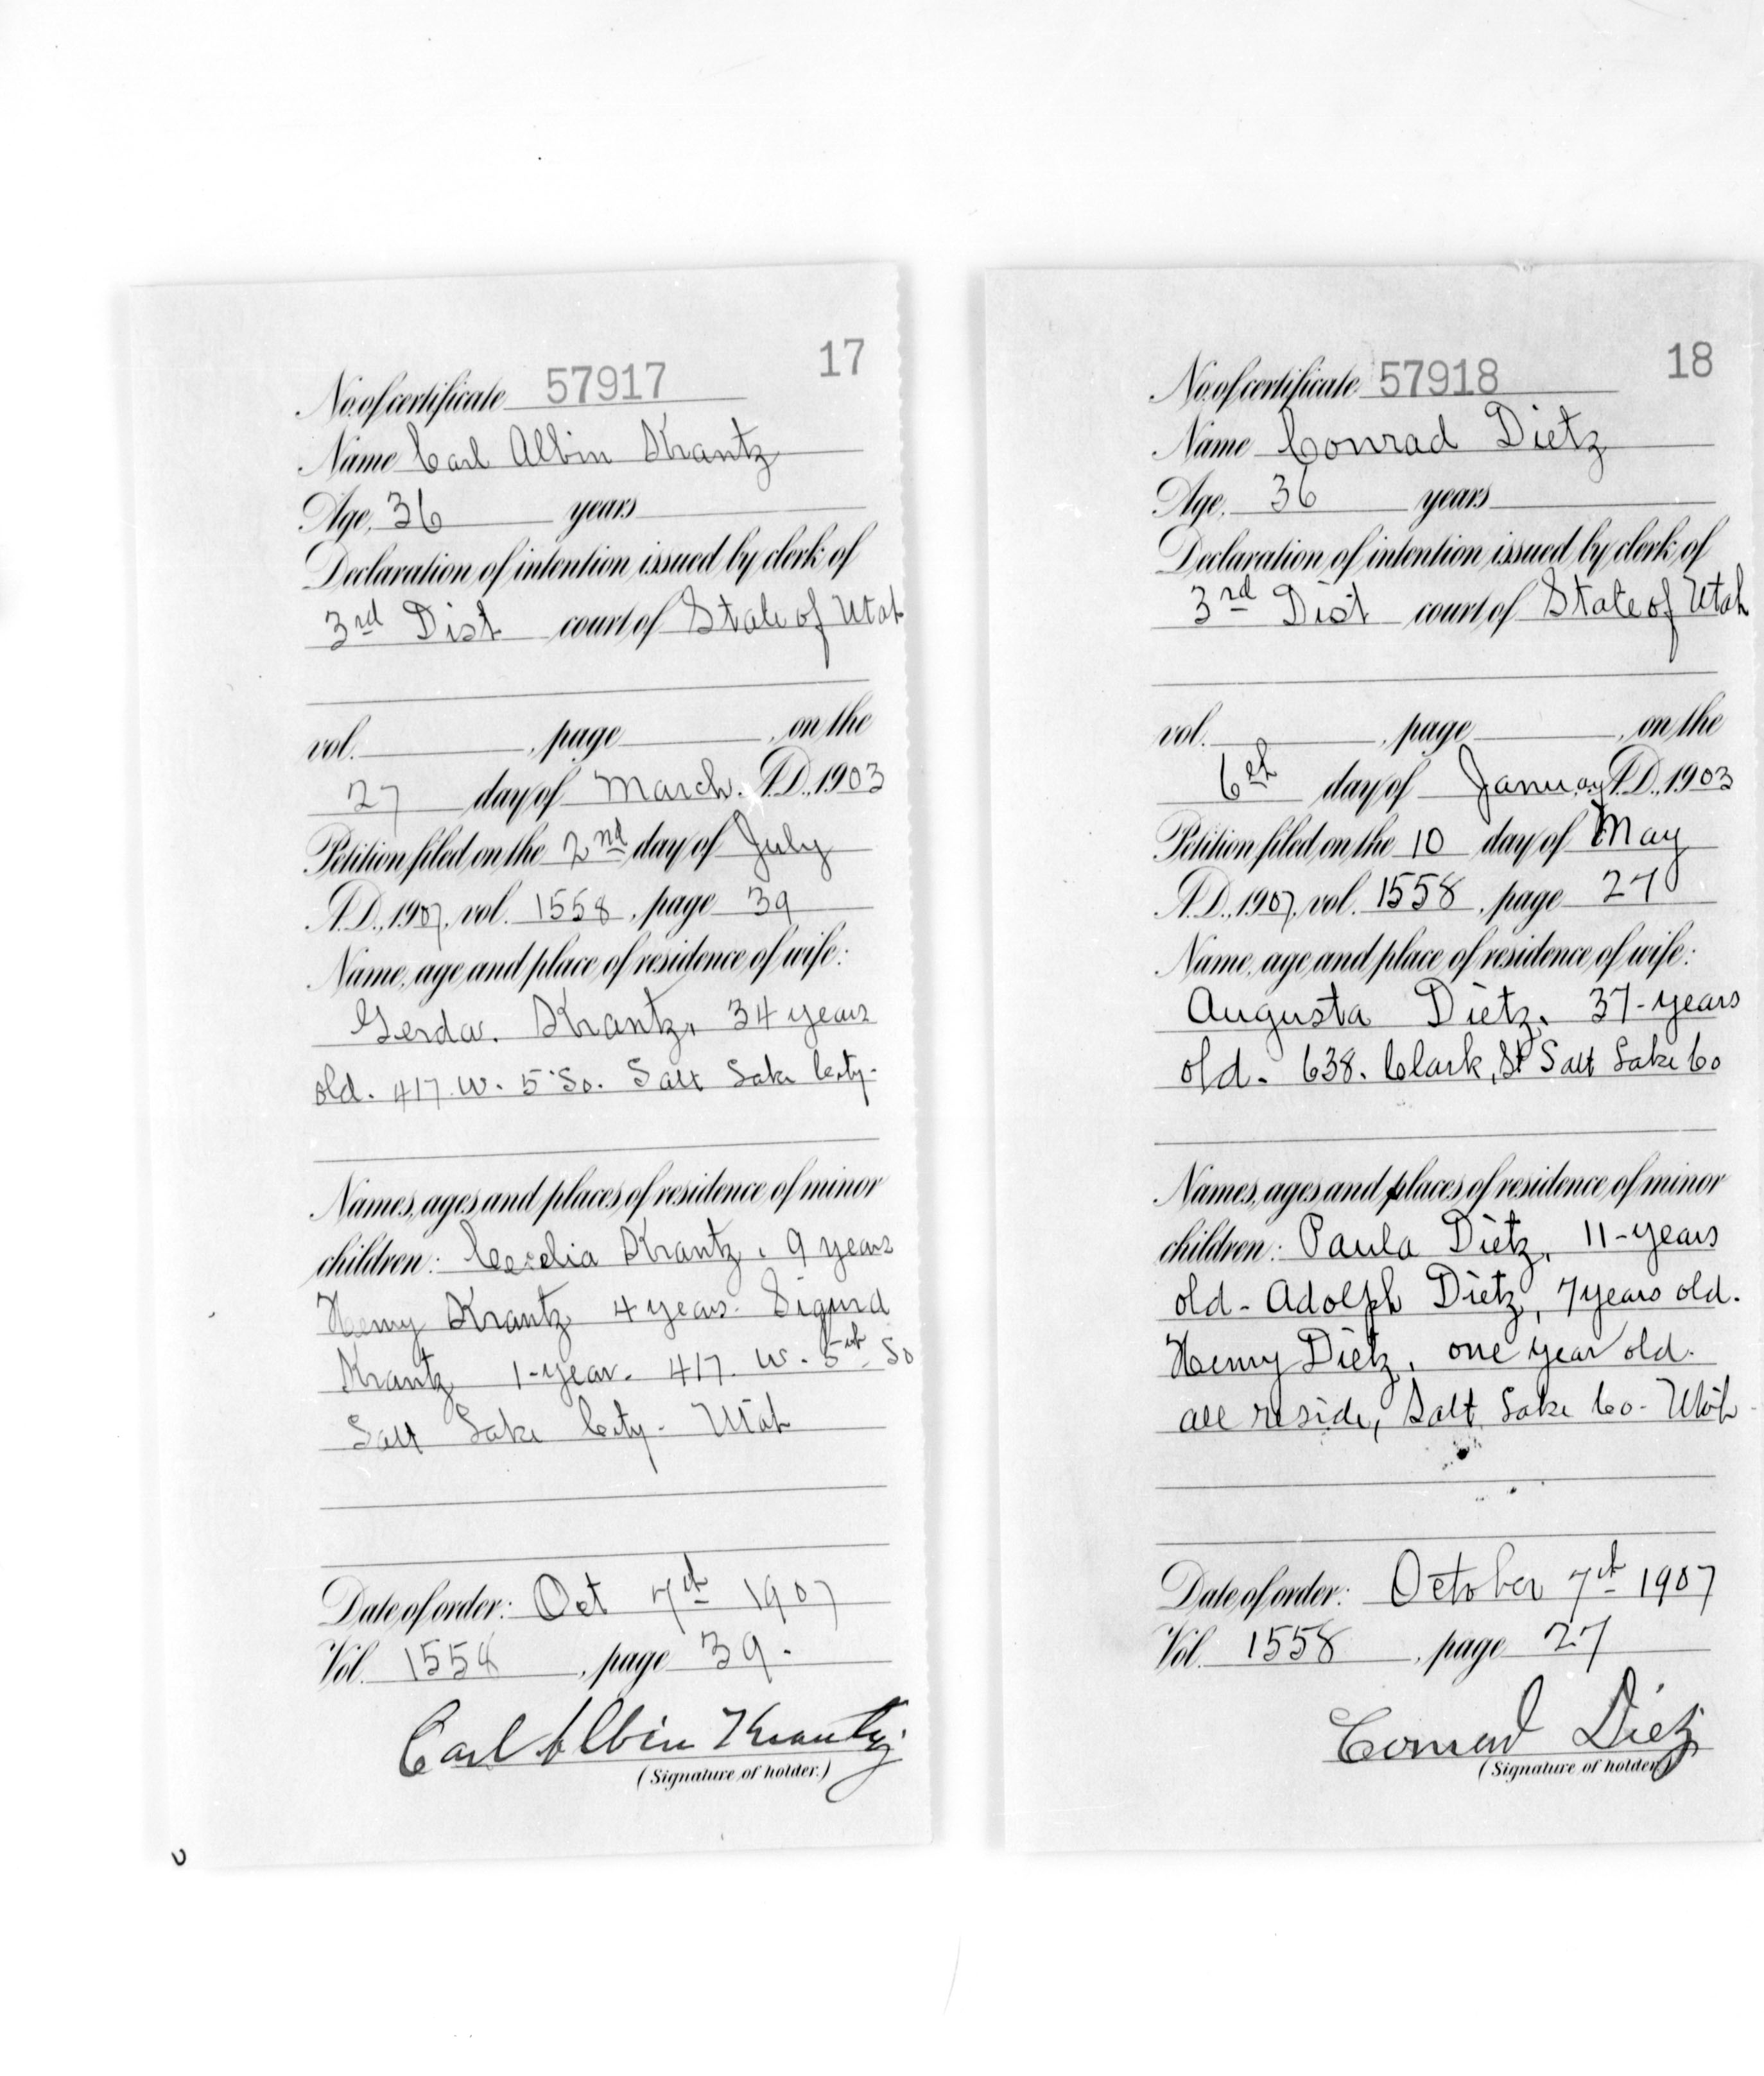 17
No. of certificate 57917
Name Carl Albin Krantz
Age, 36 years
Declaration of intention issued by clerk of
3rd Dist court of State of Utah
vol. , page , on the
27 day of March. A.D., 1903
Petition filed on the 2nd day of July
A.D., 1907, vol. 1558, page 39
Name, age and place of residence of wife:
Gerda. Krantz, 34 years
old. 417. W. 5 So. Salt Lake City-
Names, ages and places of residence of minor
children: Cecelia Krantz, 9 years
Henry Krantz 4 years. Sigurd
Krantz 1-year. 417. W. 5th So
Salt Lake City- Utah
Date of order: Oct 7th 1907
Vol. 1558, page 39.
Carl Albin Krantz.
(Signature of holder.)
18
No. of certificate 57918
Name Conrad Dietz
Age, 36 years
Declaration of intention issued by clerk of
3rd Dist court of State of Utah
vol. , page , on the
6th day of January A.D., 1903
Petition filed on the 10 day of May
A.D., 1907, vol. 1558, page 27
Name, age and place of residence of wife:
Augusta Dietz. 37-years
old. 638. Clark, St Salt Lake Co
Names, ages and places of residence of minor
children: Paula Dietz, 11-years
old- Adolph Dietz, 7 years old.
Henry Dietz, one year old.
all reside, Salt Lake Co- Utah-
Date of order: October 7th 1907
Vol. 1558, page 27
Conrad Diez
(Signature of holder.)